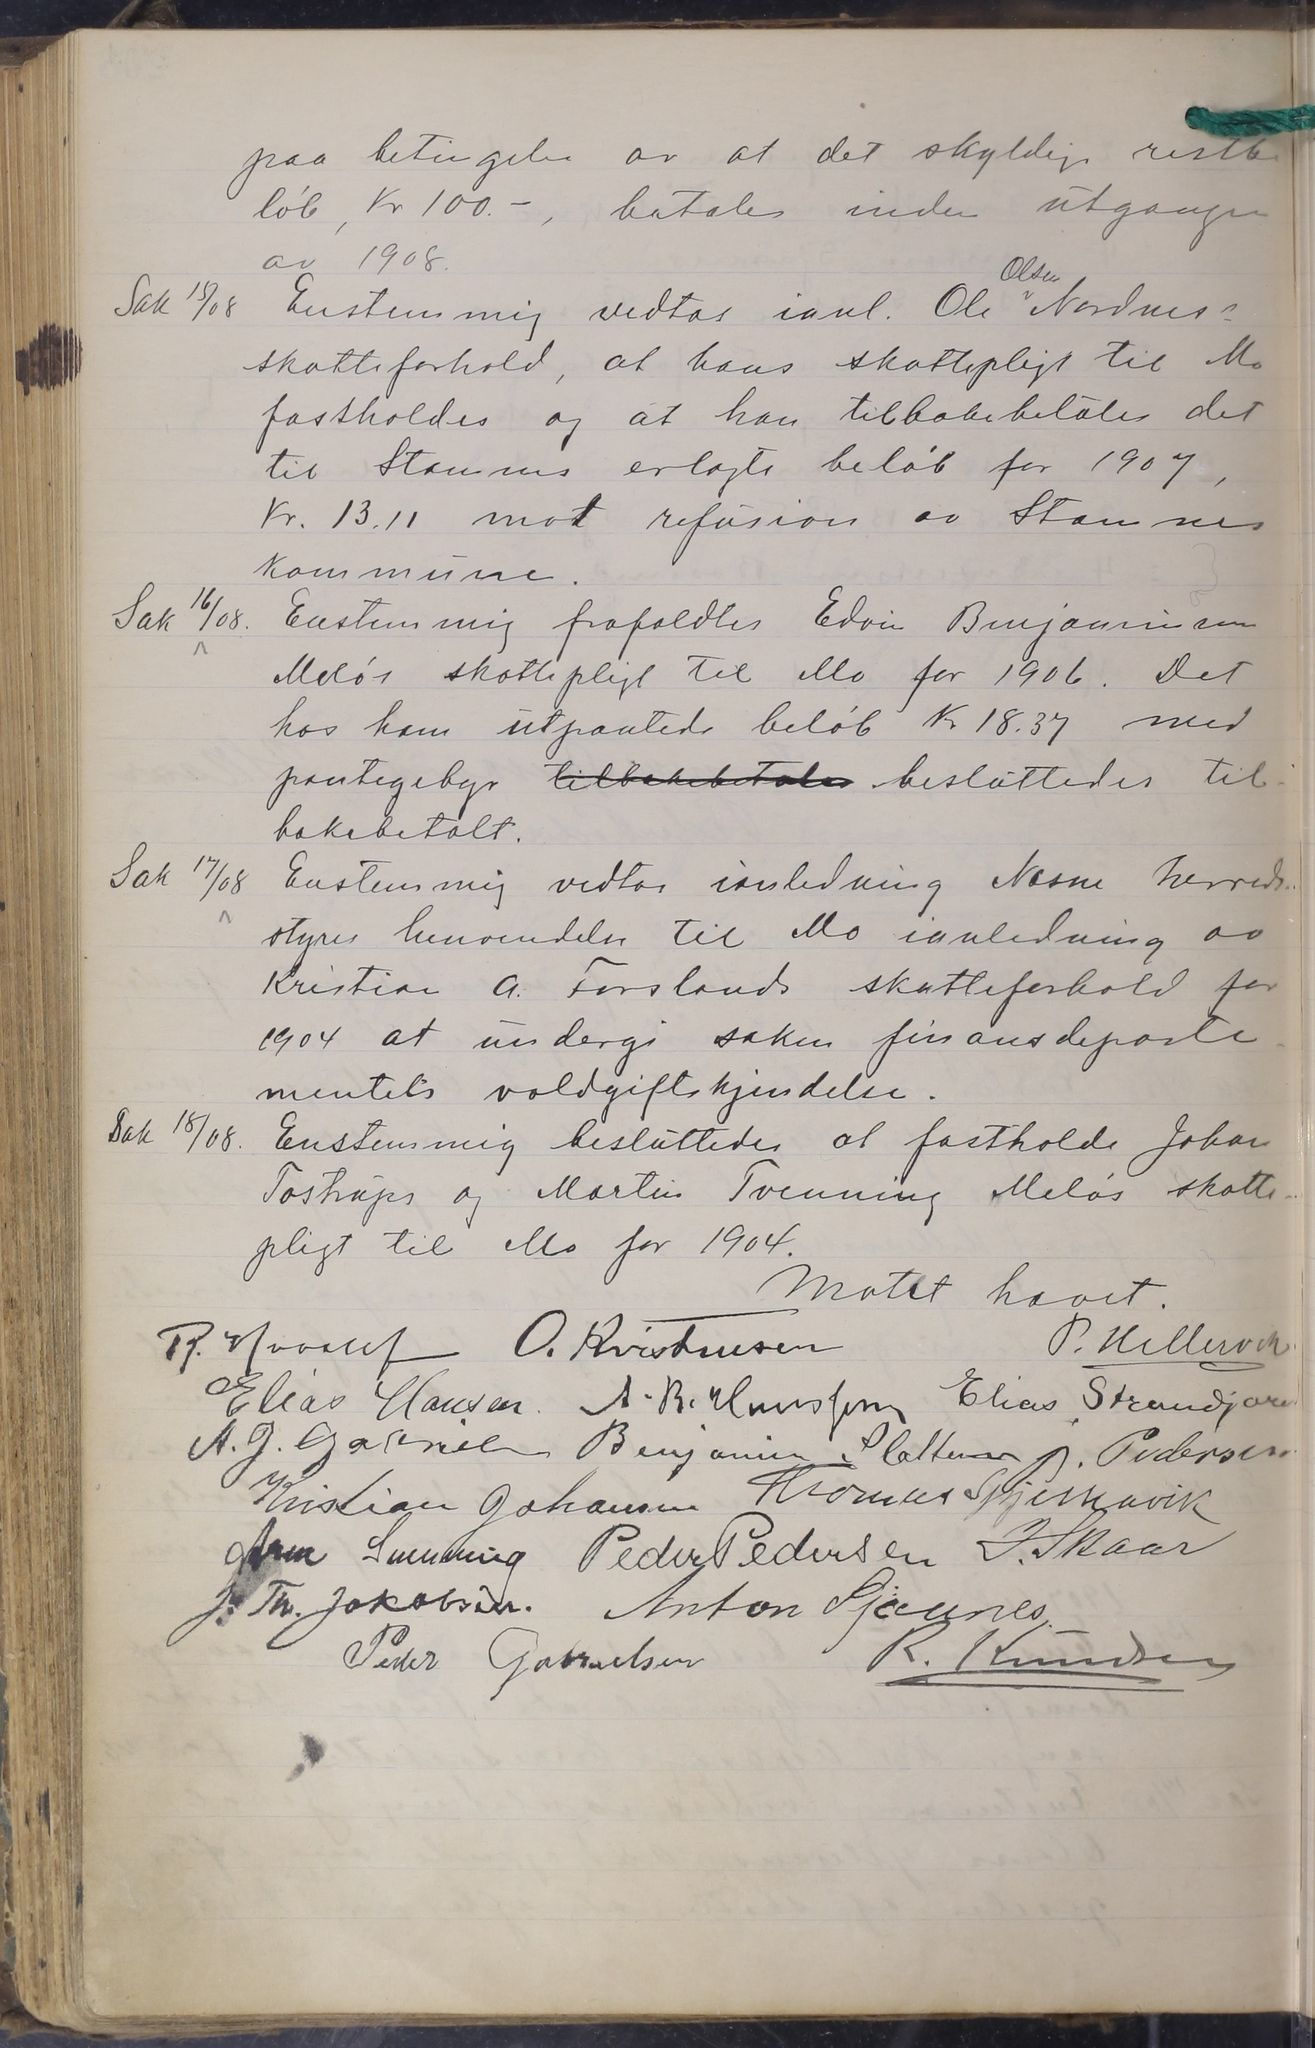 paa betingelse av at det skyldige restbe
løb, Kr 100.-, betales inden utgangen
av 1908.
Sak 15/08 Enstemmig vedtas ianl. Ole Olsen Nordnes
skatteforhold, at hans skattepligt til Mo
fastholdes og at han tilbakebetales det
til Stamnes erlagte beløb for 1907,
Kr. 13.11 mot refusion av Stamnes
kommune.
Sak 16/08. Enstemmig frafaldtes Edvin Benjaminsen
Meløs skattepligt til Mo for 1906. Det
hos ham utpantede beløb Kr 18.37 med
pantegebyr tilbakebetales besluttedes til-
bakebetalt.
Sak 17/08 Enstemmig vedtas ianledning Nesne herreds-
styres henvendelse til Mo ianledning av
Kristian A. Forslands skatteforhold for
1904 at undergi saken finansdeparte-
mentets voldgiftskjendelse.
Sak 18/08. Enstemmig besluttedes at fastholde Johan
Tostrups og Martin Tvenning Meløs skatte-
pligt til Mo for 1904.
Møtet hævet.
R. O. Kristensen P. Hellervik
Elias Hansen. A. B. Elias Strandjord
A. J. Gabrielsen Benjamin P. Pedersen
Kristian Johansen Thomas
Svenning Peder Pedersen I. Skaar
J. Th. Jakobsen. Anton Sjånes
Peder Gabrielsen R. Knudsen